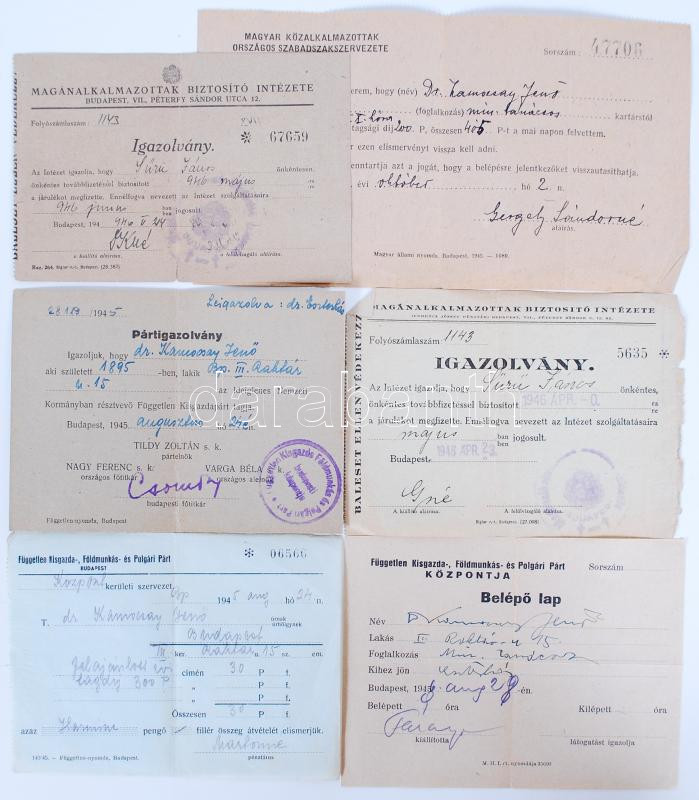 MAGYAR KÖZALKALMAZOTTAK
ORSZÁGOS SZABADSZAKSZERVEZETE
Sorszám: 47706
erem, hogy (név) Dr. Kamocsay Jenő
(foglalkozás) min. tanácsos kartárstól
tagsági díj 200 P, összesen 405 P-t a mai napon felvettem.
ezen elismervényt vissza kell adni.
enntartja azt a jogát, hogy a belépésre jelentkezőket visszautasíthatja.
évi október hó 2. n
Gergely Sándorné
aláírás.
Magyar állami nyomda, Budapest, 1945. — 1089.
MAGÁNALKALMAZOTTAK BIZTOSÍTÓ INTÉZETE
BUDAPEST, VII., PÉTERFY SÁNDOR UTCA 12.
Folyószámlaszám: 1143
Igazolvány. * 67659
Az Intézet igazolja, hogy Sűrű János önkéntesen.
önkéntes továbbfizetéssel biztosított 946 május
a járulékot megfizette. Ennélfogva nevezett az Intézet szolgáltatásaira
946 június ban ben jogosult
Budapest, 194
a kiállító aláírása.
a felülvizsgáló aláírása.
28 1945
Leigazolva: dr.
Pártigazolvány
Igazoljuk, hogy dr. Kamocsay Jenő
aki született 1895-ben, lakik Bp. III. Raktár
u. 15 az Ideiglenes Nemzeti
Kormányban résztvevő Független Kisgazdapárt tagja.
Budapest, 1945. augusztus hó 24
TILDY ZOLTÁN s. k.
pártelnök
NAGY FERENC s. k. VARGA BÉLA s. k.
országos főtitkár országos alelnök
budapesti főtitkár
Független Kisgazda Földmunkás és Polgári Párt
budapesti központja
Független-nyomda, Budapest
BALESET ELLEN VÉDEKEZZ
MAGÁNALKALMAZOTTAK BIZTOSÍTÓ INTÉZETE
Folyószámlaszám 1143
5635 *
IGAZOLVÁNY.
Az Intézet igazolja, hogy Sűrű János önkéntes,
önkéntes továbbfizetéssel biztosított 1946 APR.
a járulékot megfizette. Ennélfogva nevezett az Intézet szolgáltatásaira
május ban ben jogosult.
Budapest, 1946 APR. 23.
A kiállító aláírása.
A felülvizsgáló aláírása.
darabanth
Független Kisgazda-, Földmunkás- és Polgári Párt
BUDAPEST
* 06566
Közpönt kerületi szervezet, Bp 1945 aug hó 24 n.
T. dr. Kamocsay Jenő úrnak úrhölgynek
Budapest
III ker. Raktár u. 15 sz. em.
címén 30 P f.
tagdíj 300 P „ P f.
„ P f.
Összesen 30 P f.
azaz Harminc pengő fillér összeg átvételét elismerjük.
pénztáros
145/45. – Független-nyomda, Budapest.
Független Kisgazda-, Földmunkás- és Polgári Párt
KÖZPONTJA
Sorszám
Belépő lap
Név Dr Kamocsay Jenő
Lakás III Raktár u 15.
Foglalkozás Min. tanácsos
Kihez jön
Budapest, 1945 aug 28-én.
Belépett óra Kilépett óra
kiállította látogatást igazolja
M. H. I. rt. nyomdája 35093